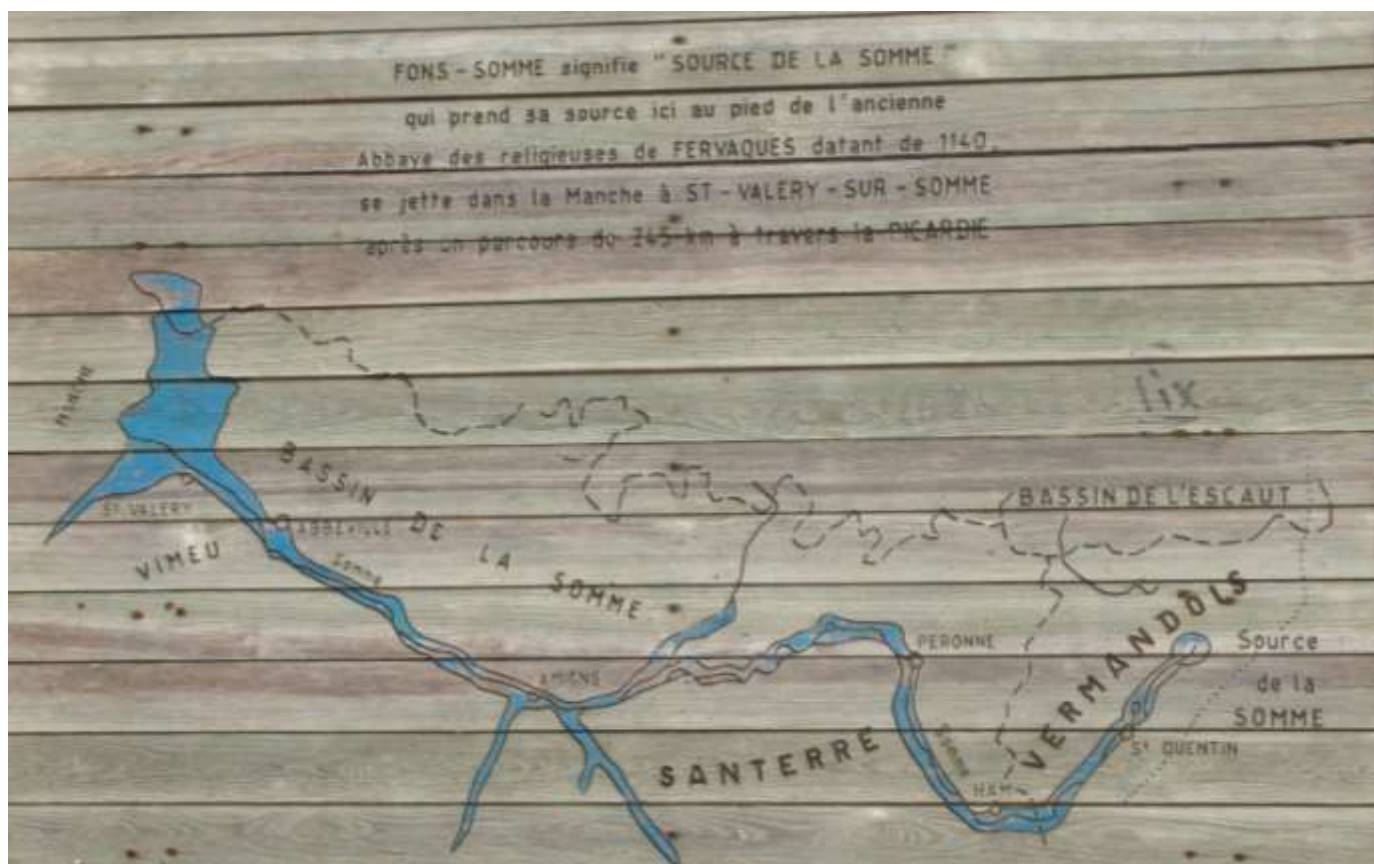 FONS-SOMME signifie "SOURCE DE LA SOMME"
qui prend sa source ici au pied de l'ancienne
Abbaye des religieuses de FERVAQUES datant de 1140,
se jette dans la Manche à ST-VALERY-SUR-SOMME
après un parcours de 245 km à travers la PICARDIE
MANCHE
lix
BASSIN DE LA SOMME
BASSIN DE L'ESCAUT
ST VALERY
ABBEVILLE
VIMEU
Somme
AMIENS
PERONNE
VERMANDOIS
Source
de la
SOMME
St QUENTIN
SANTERRE
Somme
HAM